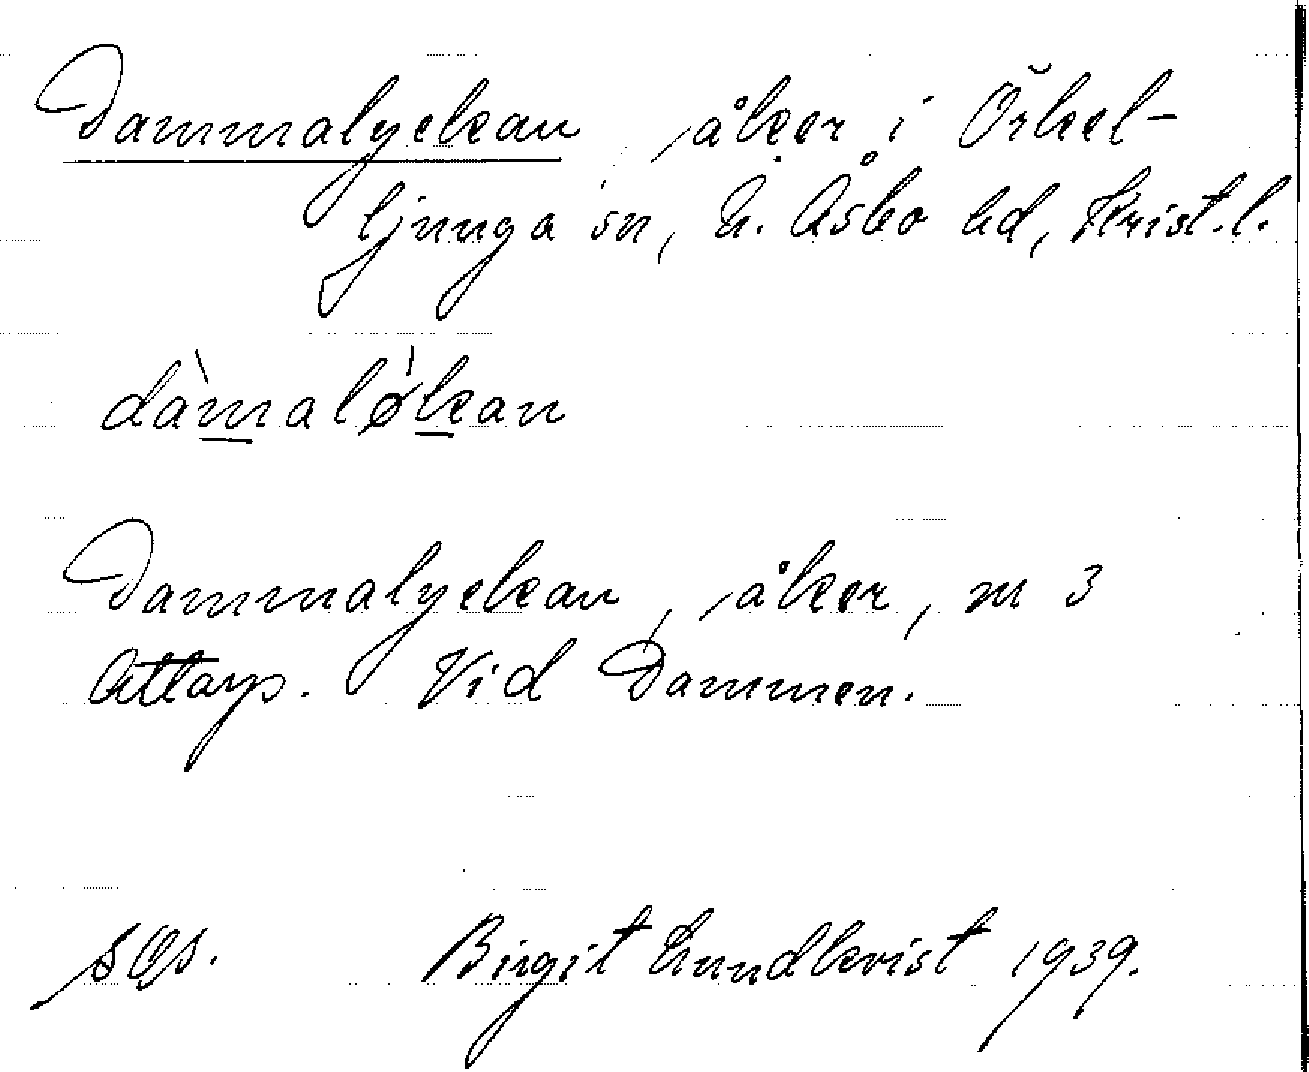 Dammalyckan, åker i Örkel-
ljunga sn, N. Åsbo hd, Krist. l.
dàmaløkan
Dammalyckan, åker, nr 3
Attarp. Vid Dammen.
SOs. Birgit Lundkvist 1939.